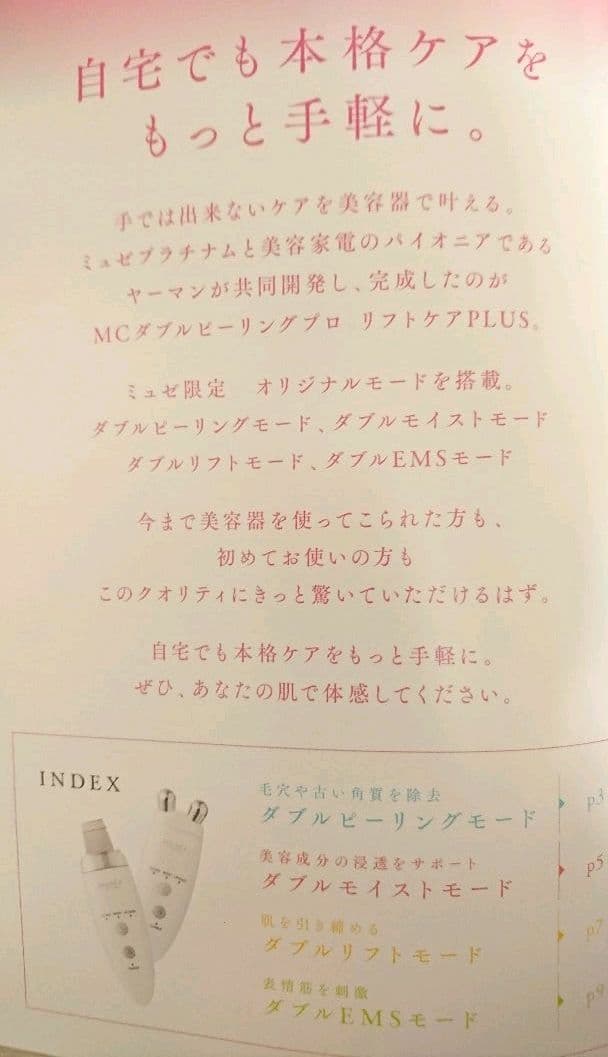 自宅でも本格ケアを
もっと手軽に。
手では出来ないケアを美容器で叶える。
ミュゼプラチナムと美容家電のパイオニアである
ヤーマンが共同開発し、完成したのが
MCダブルピーリングプロ リフトケアPLUS。
ミュゼ限定 オリジナルモードを搭載。
ダブルピーリングモード、ダブルモイストモード
ダブルリフトモード、ダブルEMSモード
今まで美容器を使ってこられた方も、
初めてお使いの方も
このクオリティにきっと驚いていただけるはず。
自宅でも本格ケアをもっと手軽に。
ぜひ、あなたの肌で体感してください。
INDEX
毛穴や古い角質を除去
ダブルピーリングモード p3
美容成分の浸透をサポート
ダブルモイストモード p5
肌を引き締める
ダブルリフトモード p7
表情筋を刺激
ダブルEMSモード p9